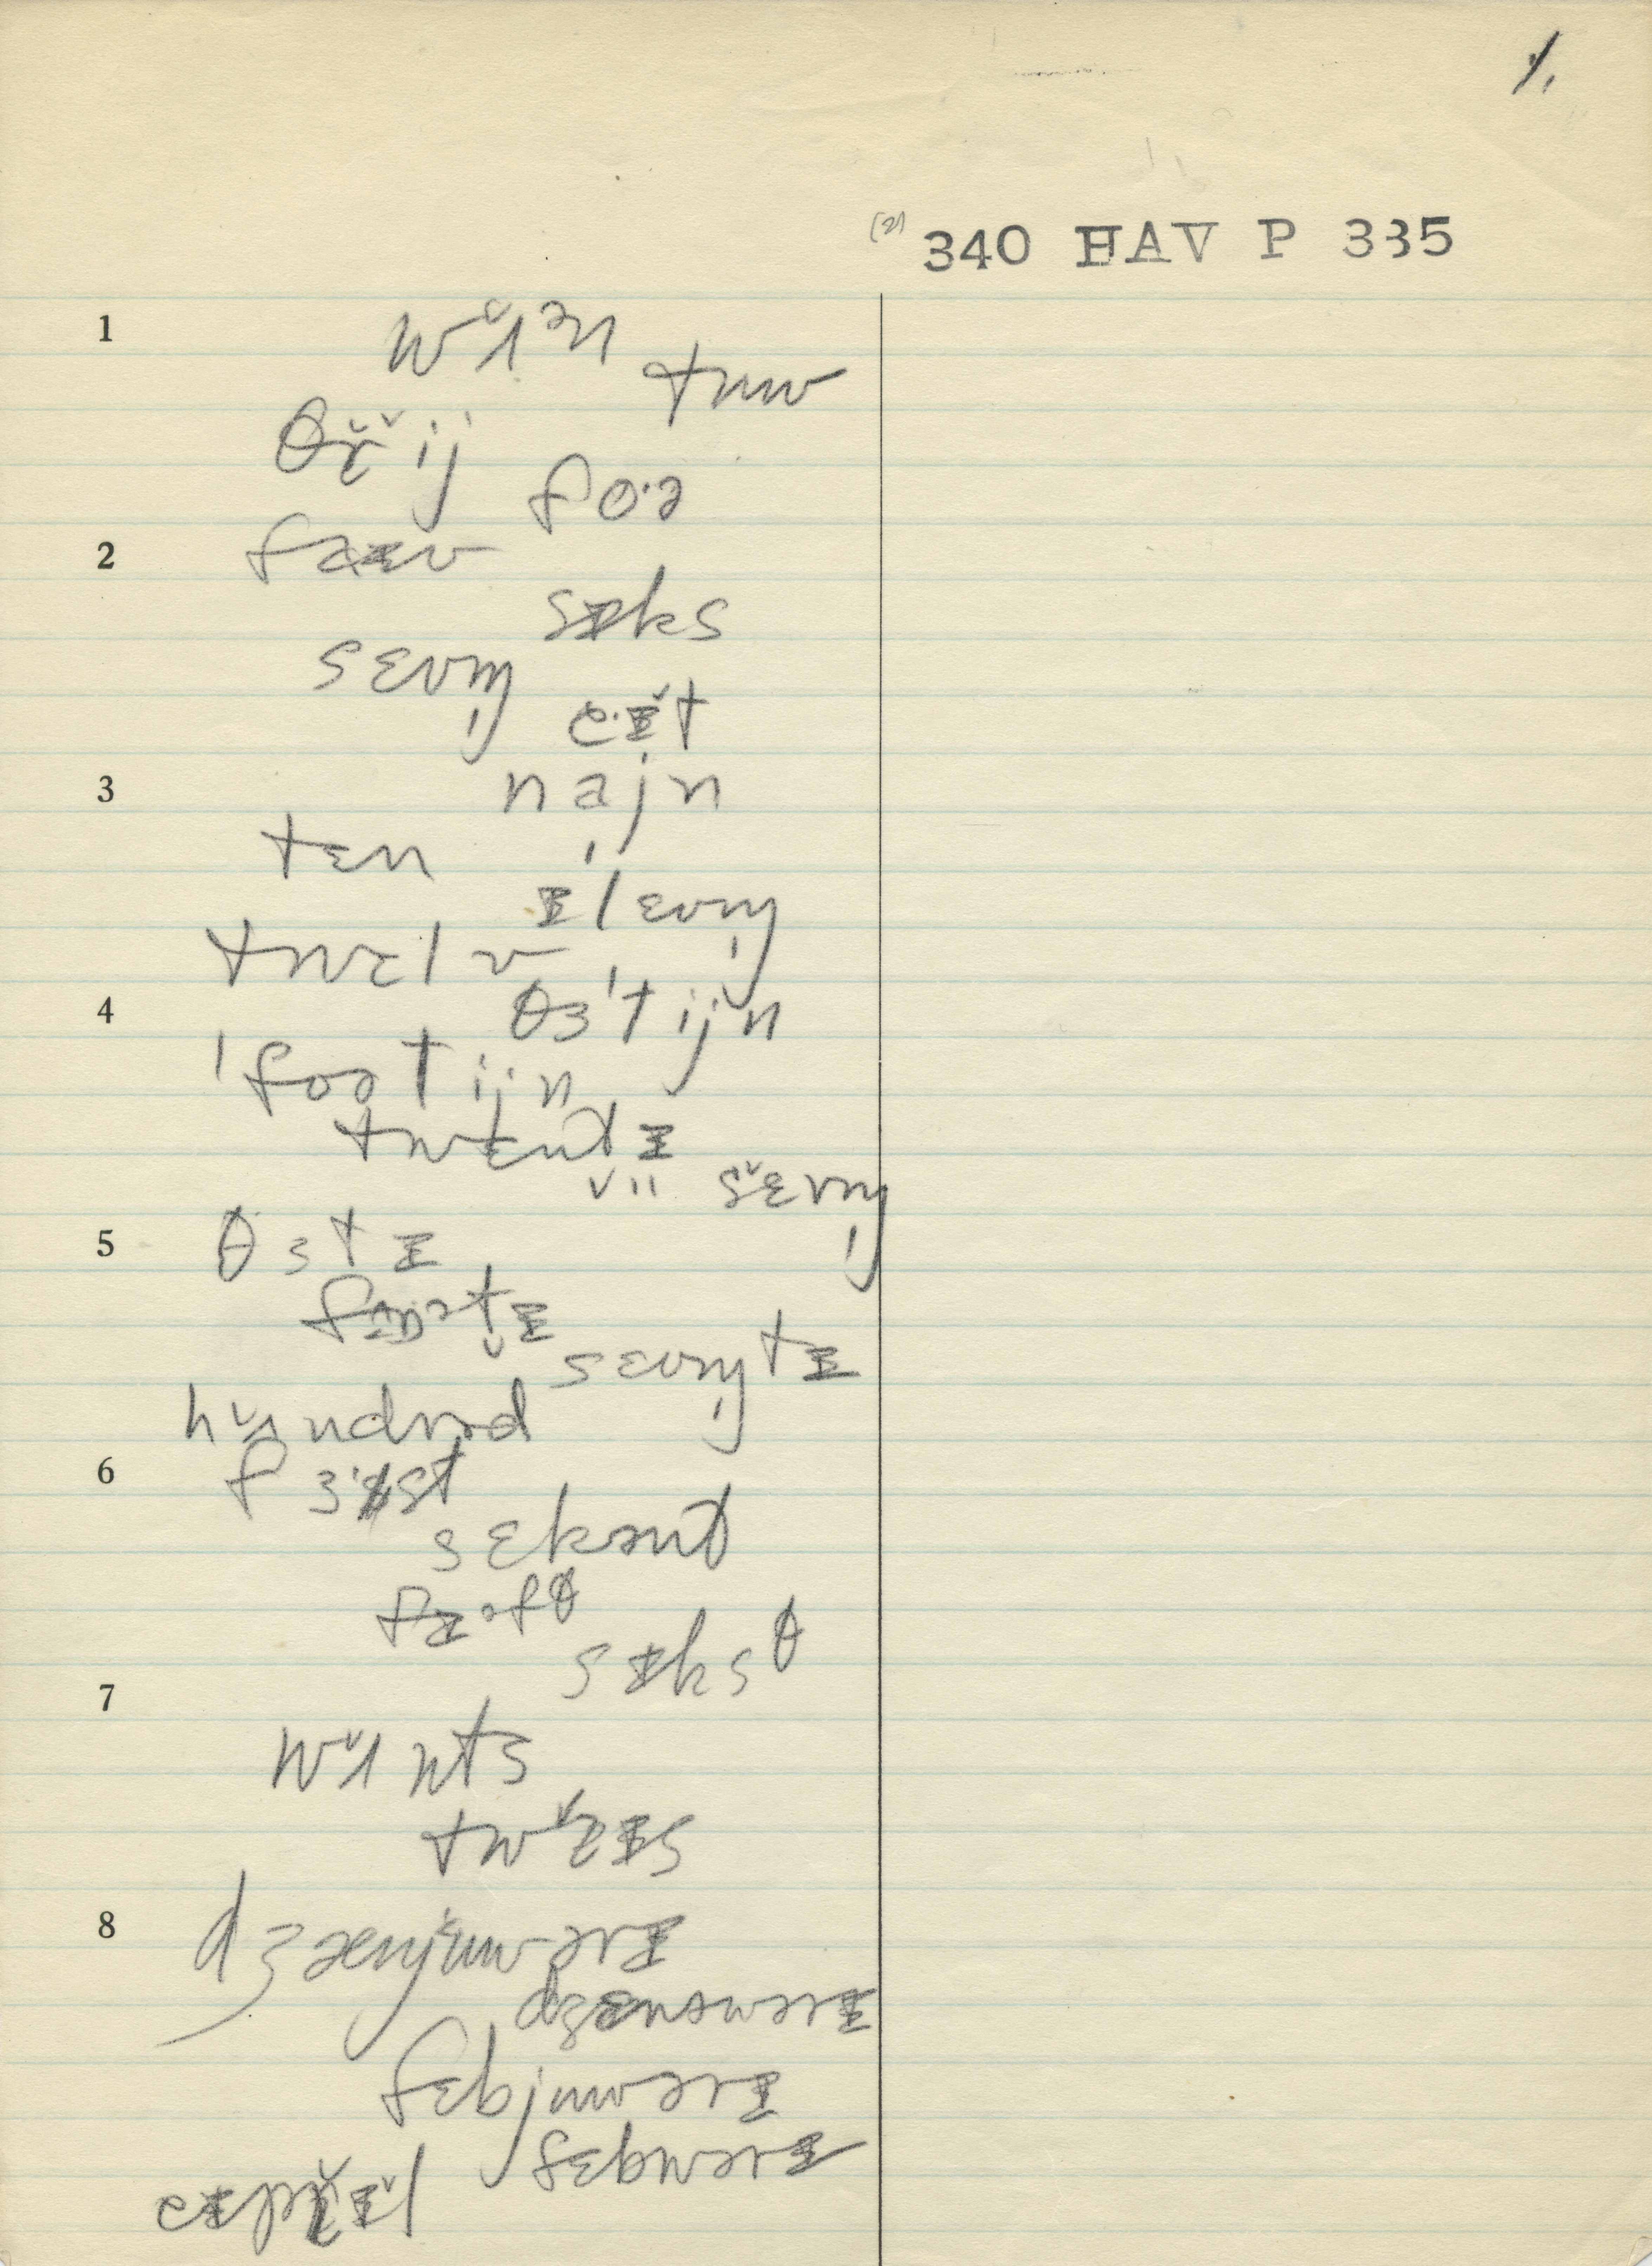 1.
(2) 340 HAV P 335
1 wʌ̆ᵊn
tuw
θr̆̆ij
2 foˑə
faɪv
sɪks
sɛvm̩
eˑɪ̆t
3 najn
tɛn
ɪlɛvm̩
twɛlv
4 θɜˈtijn
ˈfoətijn
twɛntɪ
sɛ̆vm̩
5 θɜtɪ
sɛvm̩tɪ
hʌ̆ndrəd
6 fɜˑst
sɛkənt
fɪəfθ
sɪksθ
7 wʌ̆nts
twăɪs
8 dʒænjŭwərɪ
dʒɛnəwərɪ
fɛbjuwərɪ
fɛbwərɪ
eɪpr̆ɪ̆l